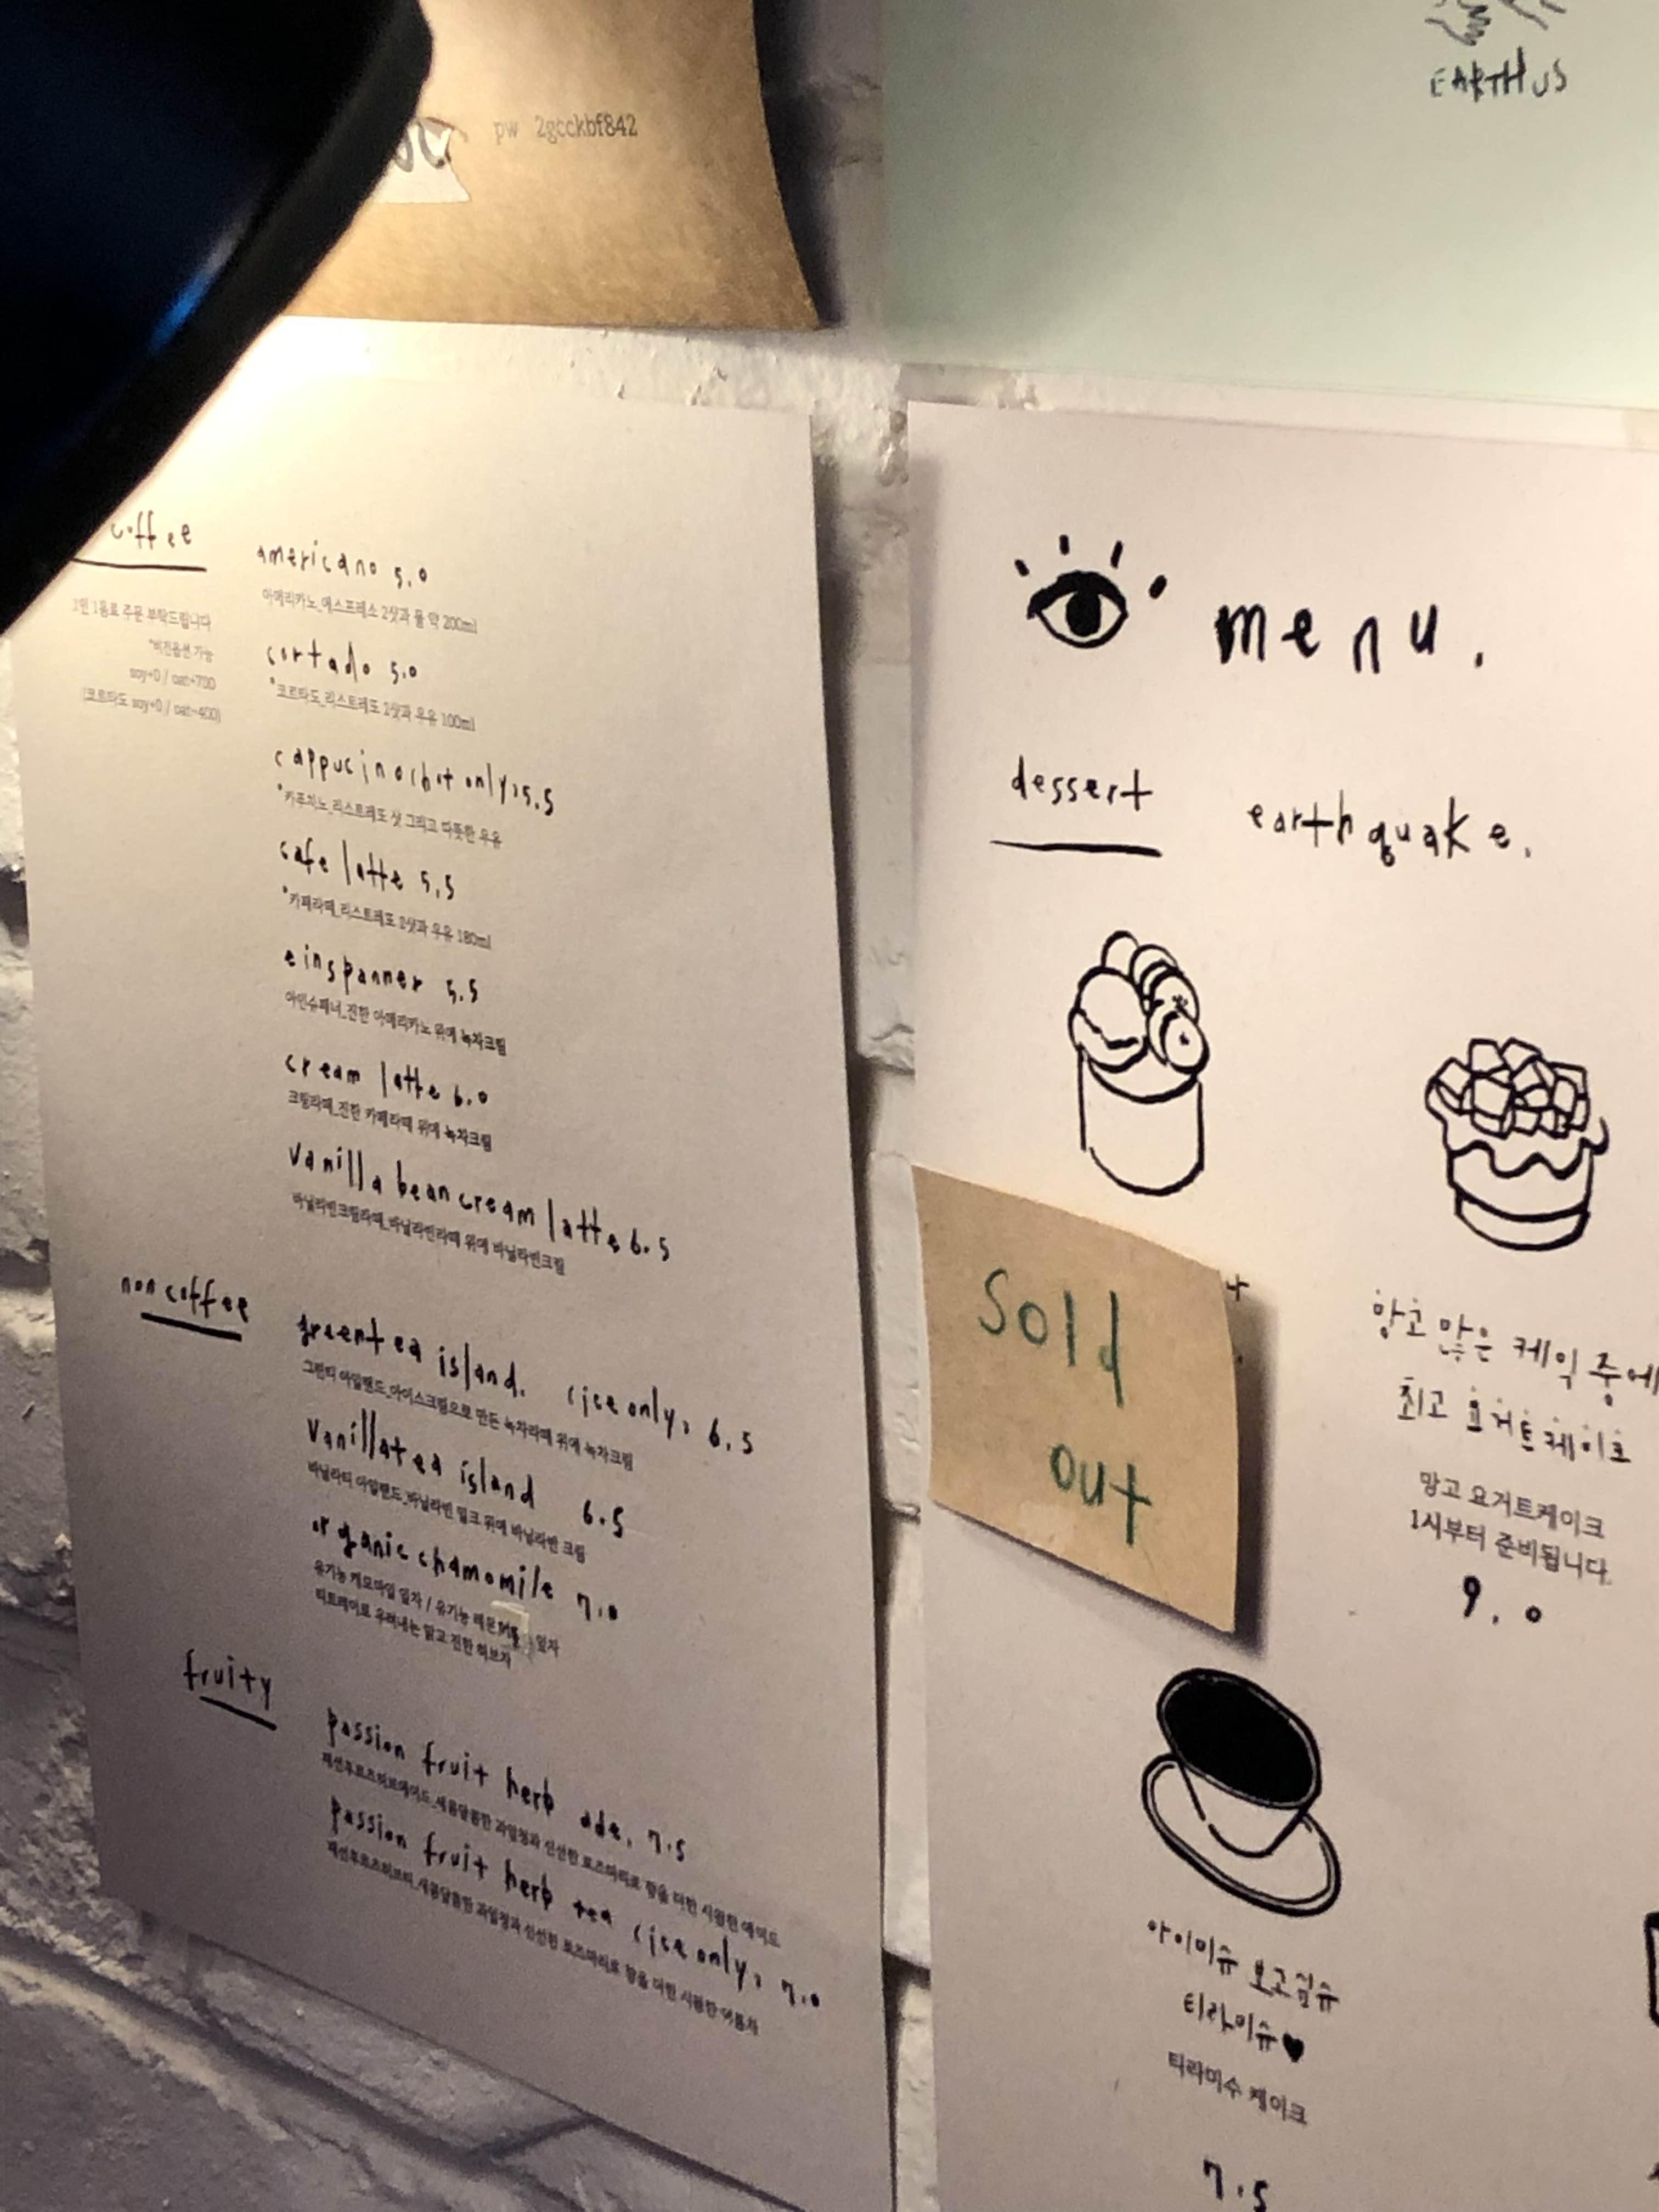 EARTH US
pw 2gcckbf842
coffee
1인 1음료 주문 부탁드립니다
*비건옵션 가능
soy+0 / oat+700
(코르타도 soy+0 / oat+400)
americano 5.0
아메리카노_에스프레소 2샷과 물 약 200ml
cortado 5.0
*코르타도_리스트레또 2샷과 우유 100ml
cappucino(hot only)5.5
*카푸치노_리스트레또 샷 그리고 따뜻한 우유
cafe latte 5.5
*카페라떼_리스트레또 2샷과 우유 180ml
einspanner 5.5
아인슈패너_진한 아메리카노 위에 녹차크림
cream latte 6.0
크림라떼_진한 카페라떼 위에 녹차크림
vanilla bean cream latte 6.5
바닐라빈크림라떼_바닐라빈라떼 위에 바닐라빈크림
non coffee
greentea island. (ice only) 6.5
그린티 아일랜드_아이스크림으로 만든 녹차라떼 위에 녹차크림
Vanillatea island 6.5
바닐라티 아일랜드_바닐라빈 밀크 위에 바닐라빈 크림
organic chamomile 7.0
유기농 캐모마일 잎차 / 유기농 레몬 잎차
티트레이로 우려내는 맑고 진한 허브차
fruity
passion fruit herb ade. 7.5
패션후르츠허브에이드_새콤달콤한 과일청과 신선한 로즈마리로 향을 더한 시원한 에이드
passion fruit herb tea (ice only) 7.0
패션후르츠허브티_새콤달콤한 과일청과 신선한 로즈마리로 향을 더한 시원한 여름차
menu.
dessert
earth quake.
Sold
out
망고 많은 케익 중에
최고 요거트케이크
망고 요거트케이크
1시부터 준비됩니다.
9.0
아이미슈 보고싶슈
티라미슈♥
티라미수 케이크
7.5